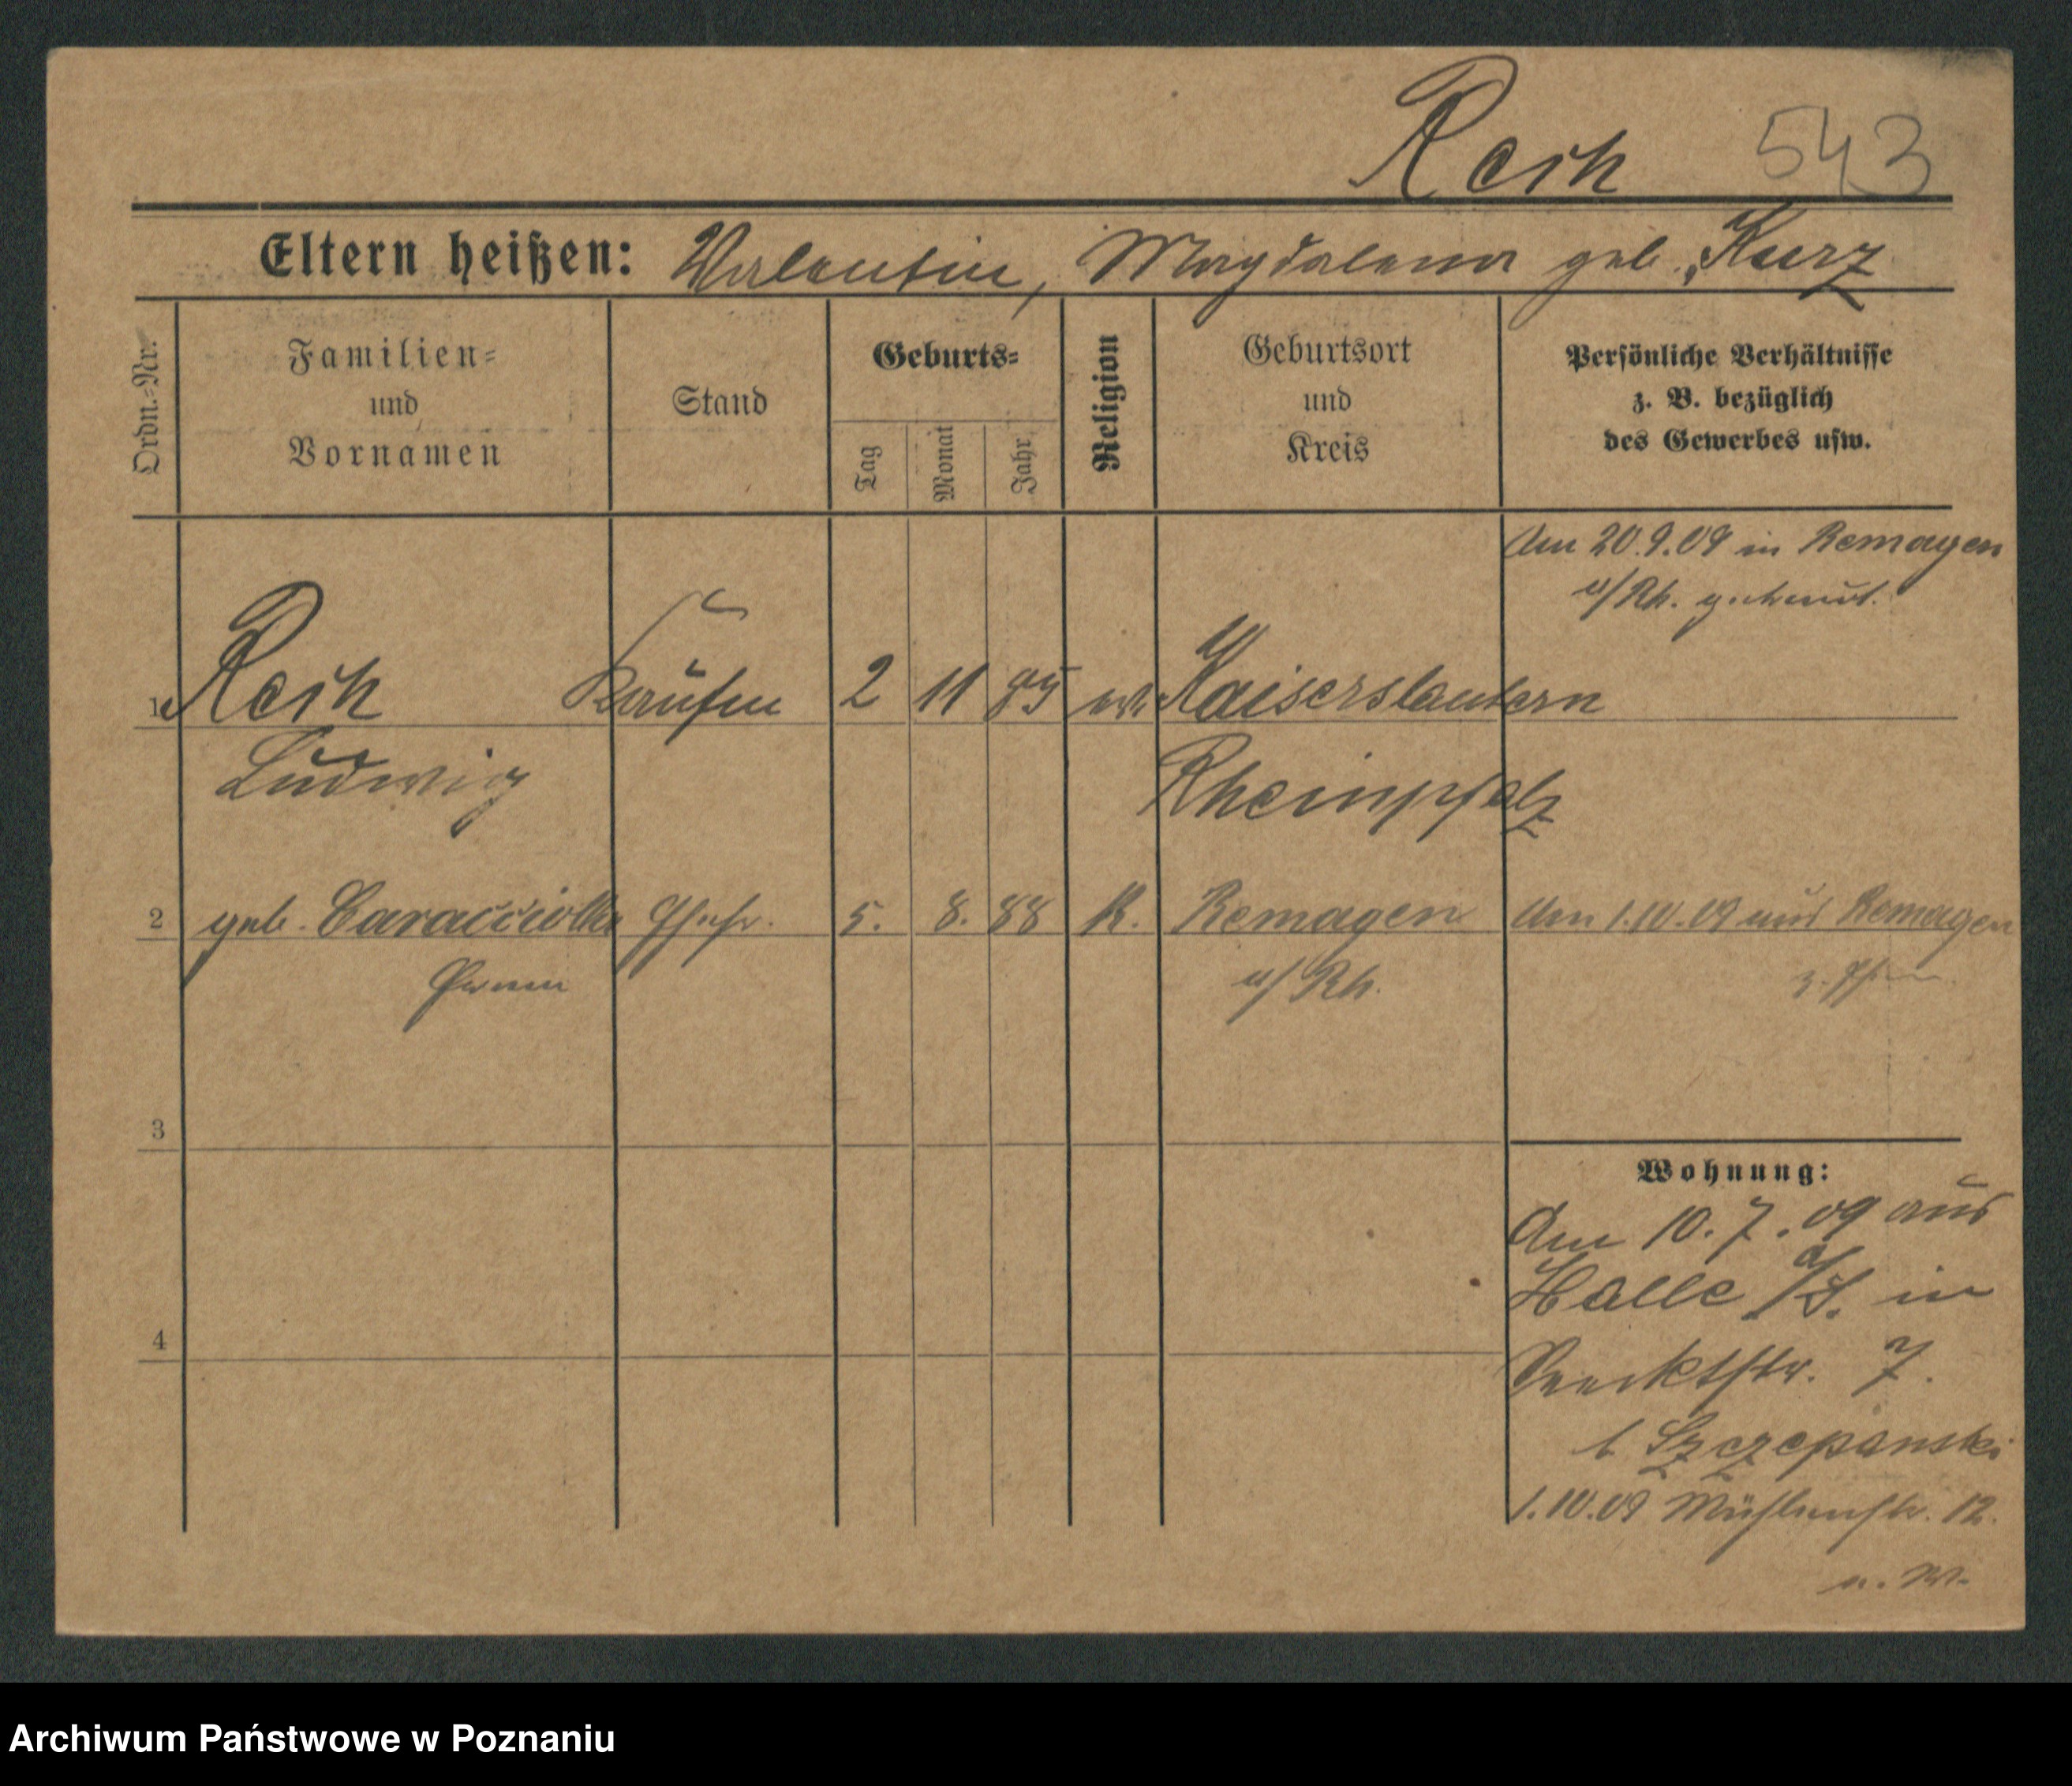 Resch 543
Eltern heißen: Valentin, Magdalena geb. Kurz
Ordn.=Nr.
Familien=
und
Vornamen
Stand
Geburts=
Tag
Monat
Jahr
Religion
Geburtsort
und
Kreis
Persönliche Verhältnisse
z. B. bezüglich
des Gewerbes usw.
Am 20.9.09 in Remagen
a/Rh. geheirat.
1 Resch Kaufm 2 11 85 Kaiserslautern
Ludwig Rheinpfalz
2 geb. Caracciolla Ehefr. 5. 8. 88 K. Remagen Am 1.10.09 aus Remagen
a/Rh.
3
4
Wohnung:
Am 10.7.09 aus
Halle a/S. in
7.
b Szczepanski
1.10.09 Mühlenstr. 12.
Archiwum Państwowe w Poznaniu